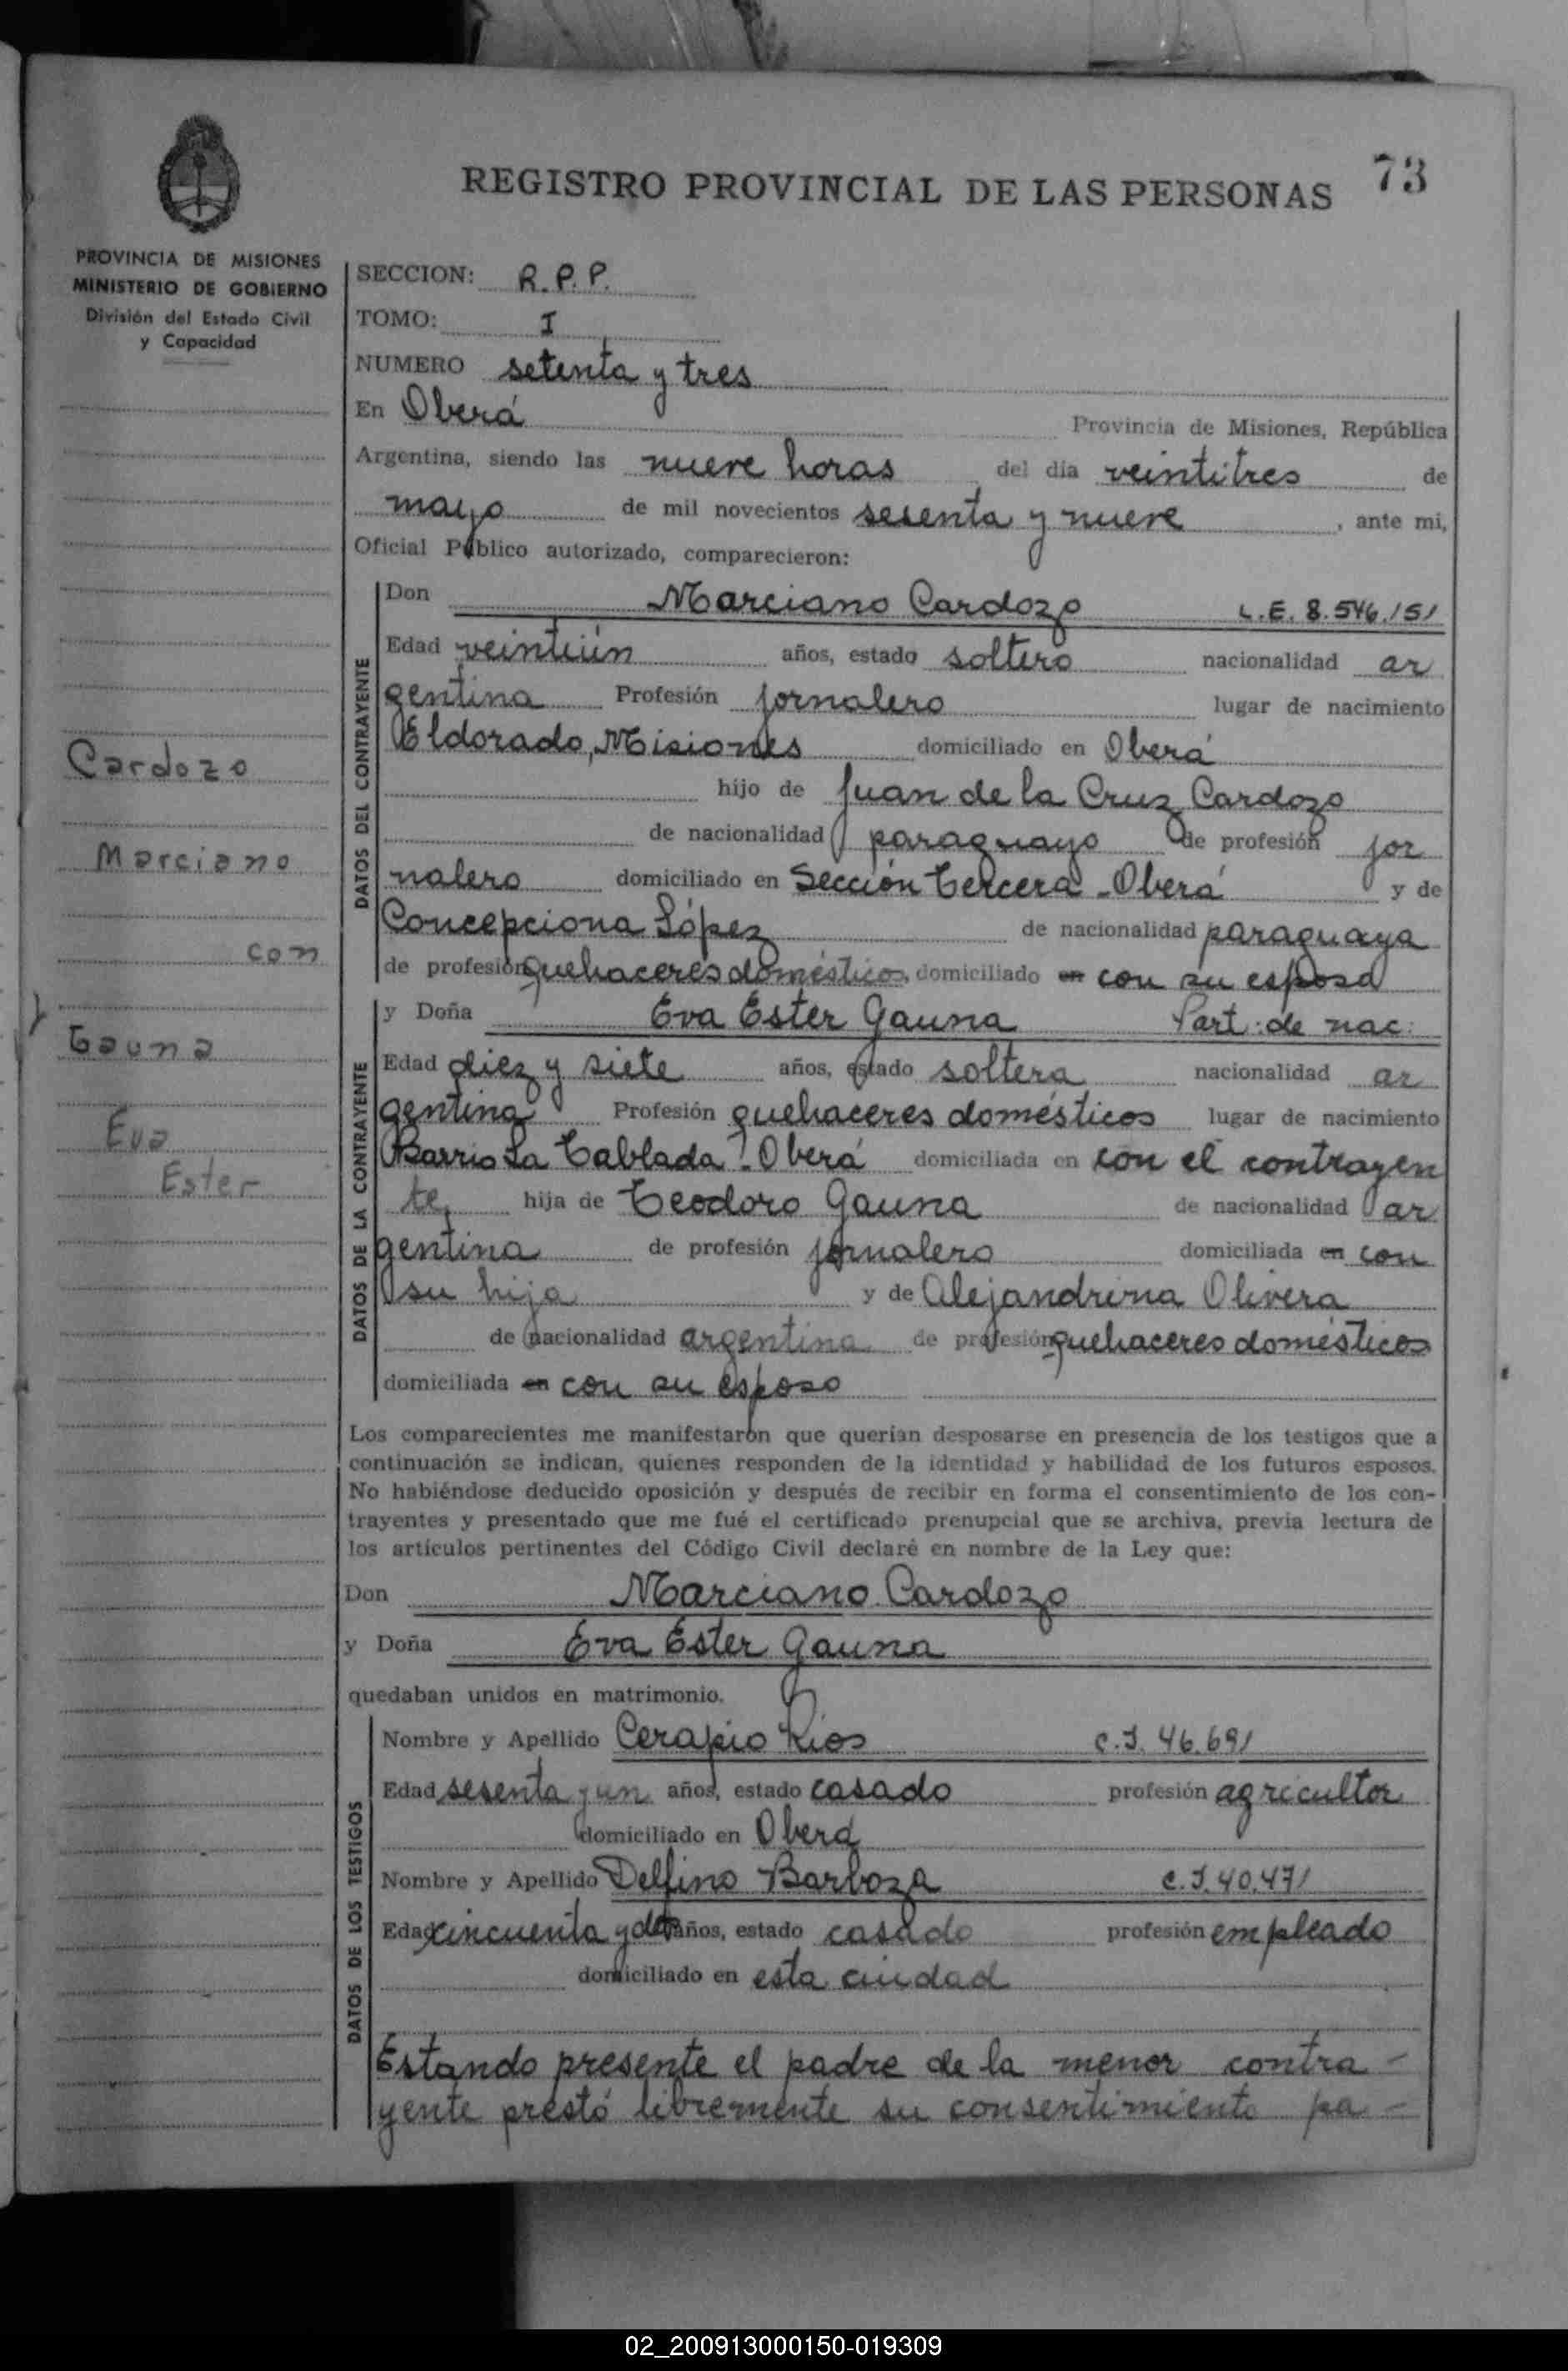 73
REGISTRO PROVINCIAL DE LAS PERSONAS
PROVINCIA DE MISIONES
MINISTERIO DE GOBIERNO
División del Estado Civil
y Capacidad
Cardozo
Marciano
con
Gauna
Eva
Ester
SECCION: R.P.P.
TOMO: I
NUMERO setenta y tres
En Oberá Provincia de Misiones, República
Argentina, siendo las nueve horas del día veintitres de
mayo de mil novecientos sesenta y nueve, ante mi,
Oficial Público autorizado, comparecieron:
DATOS DEL CONTRAYENTE
Don Marciano Cardozo L.E. 8.546.151
Edad veintiún años, estado soltero nacionalidad ar
gentina Profesión jornalero lugar de nacimiento
Eldorado, Misiones domiciliado en Oberá
hijo de Juan de la Cruz Cardozo
de nacionalidad paraguayo de profesión jor
nalero domiciliado en Sección Tercera - Oberá y de
Concepciona López de nacionalidad paraguaya
de profesión quehaceres domésticos, domiciliado en con su esposo
DATOS DE LA CONTRAYENTE
y Doña Eva Ester Gauna Part: de nac:
Edad diez y siete años, estado soltera nacionalidad ar
gentina Profesión quehaceres domésticos lugar de nacimiento
Barrio La Tablada - Oberá domiciliada en con el contrayen
te, hija de Teodoro Gauna de nacionalidad ar
gentina de profesión jornalero domiciliada en con
su hija y de Alejandrina Olivera
de nacionalidad argentina de profesión quehaceres domésticos
domiciliada en con su esposo
Los comparecientes me manifestaron que querían desposarse en presencia de los testigos que a
continuación se indican, quienes responden de la identidad y habilidad de los futuros esposos.
No habiéndose deducido oposición y después de recibir en forma el consentimiento de los con-
trayentes y presentado que me fué el certificado prenupcial que se archiva, previa lectura de
los artículos pertinentes del Código Civil declaré en nombre de la Ley que:
Don Marciano Cardozo
y Doña Eva Ester Gauna
quedaban unidos en matrimonio.
DATOS DE LOS TESTIGOS
Nombre y Apellido Cerapio Ríos C.I. 46.691
Edad sesenta y un años, estado casado profesión agricultor
domiciliado en Oberá
Nombre y Apellido Delfino Barboza C.I. 40.471
Edad cincuenta y dos años, estado casado profesión empleado
domiciliado en esta ciudad
Estando presente el padre de la menor contra-
yente prestó libremente su consentimiento pa-
02_200913000150-019309